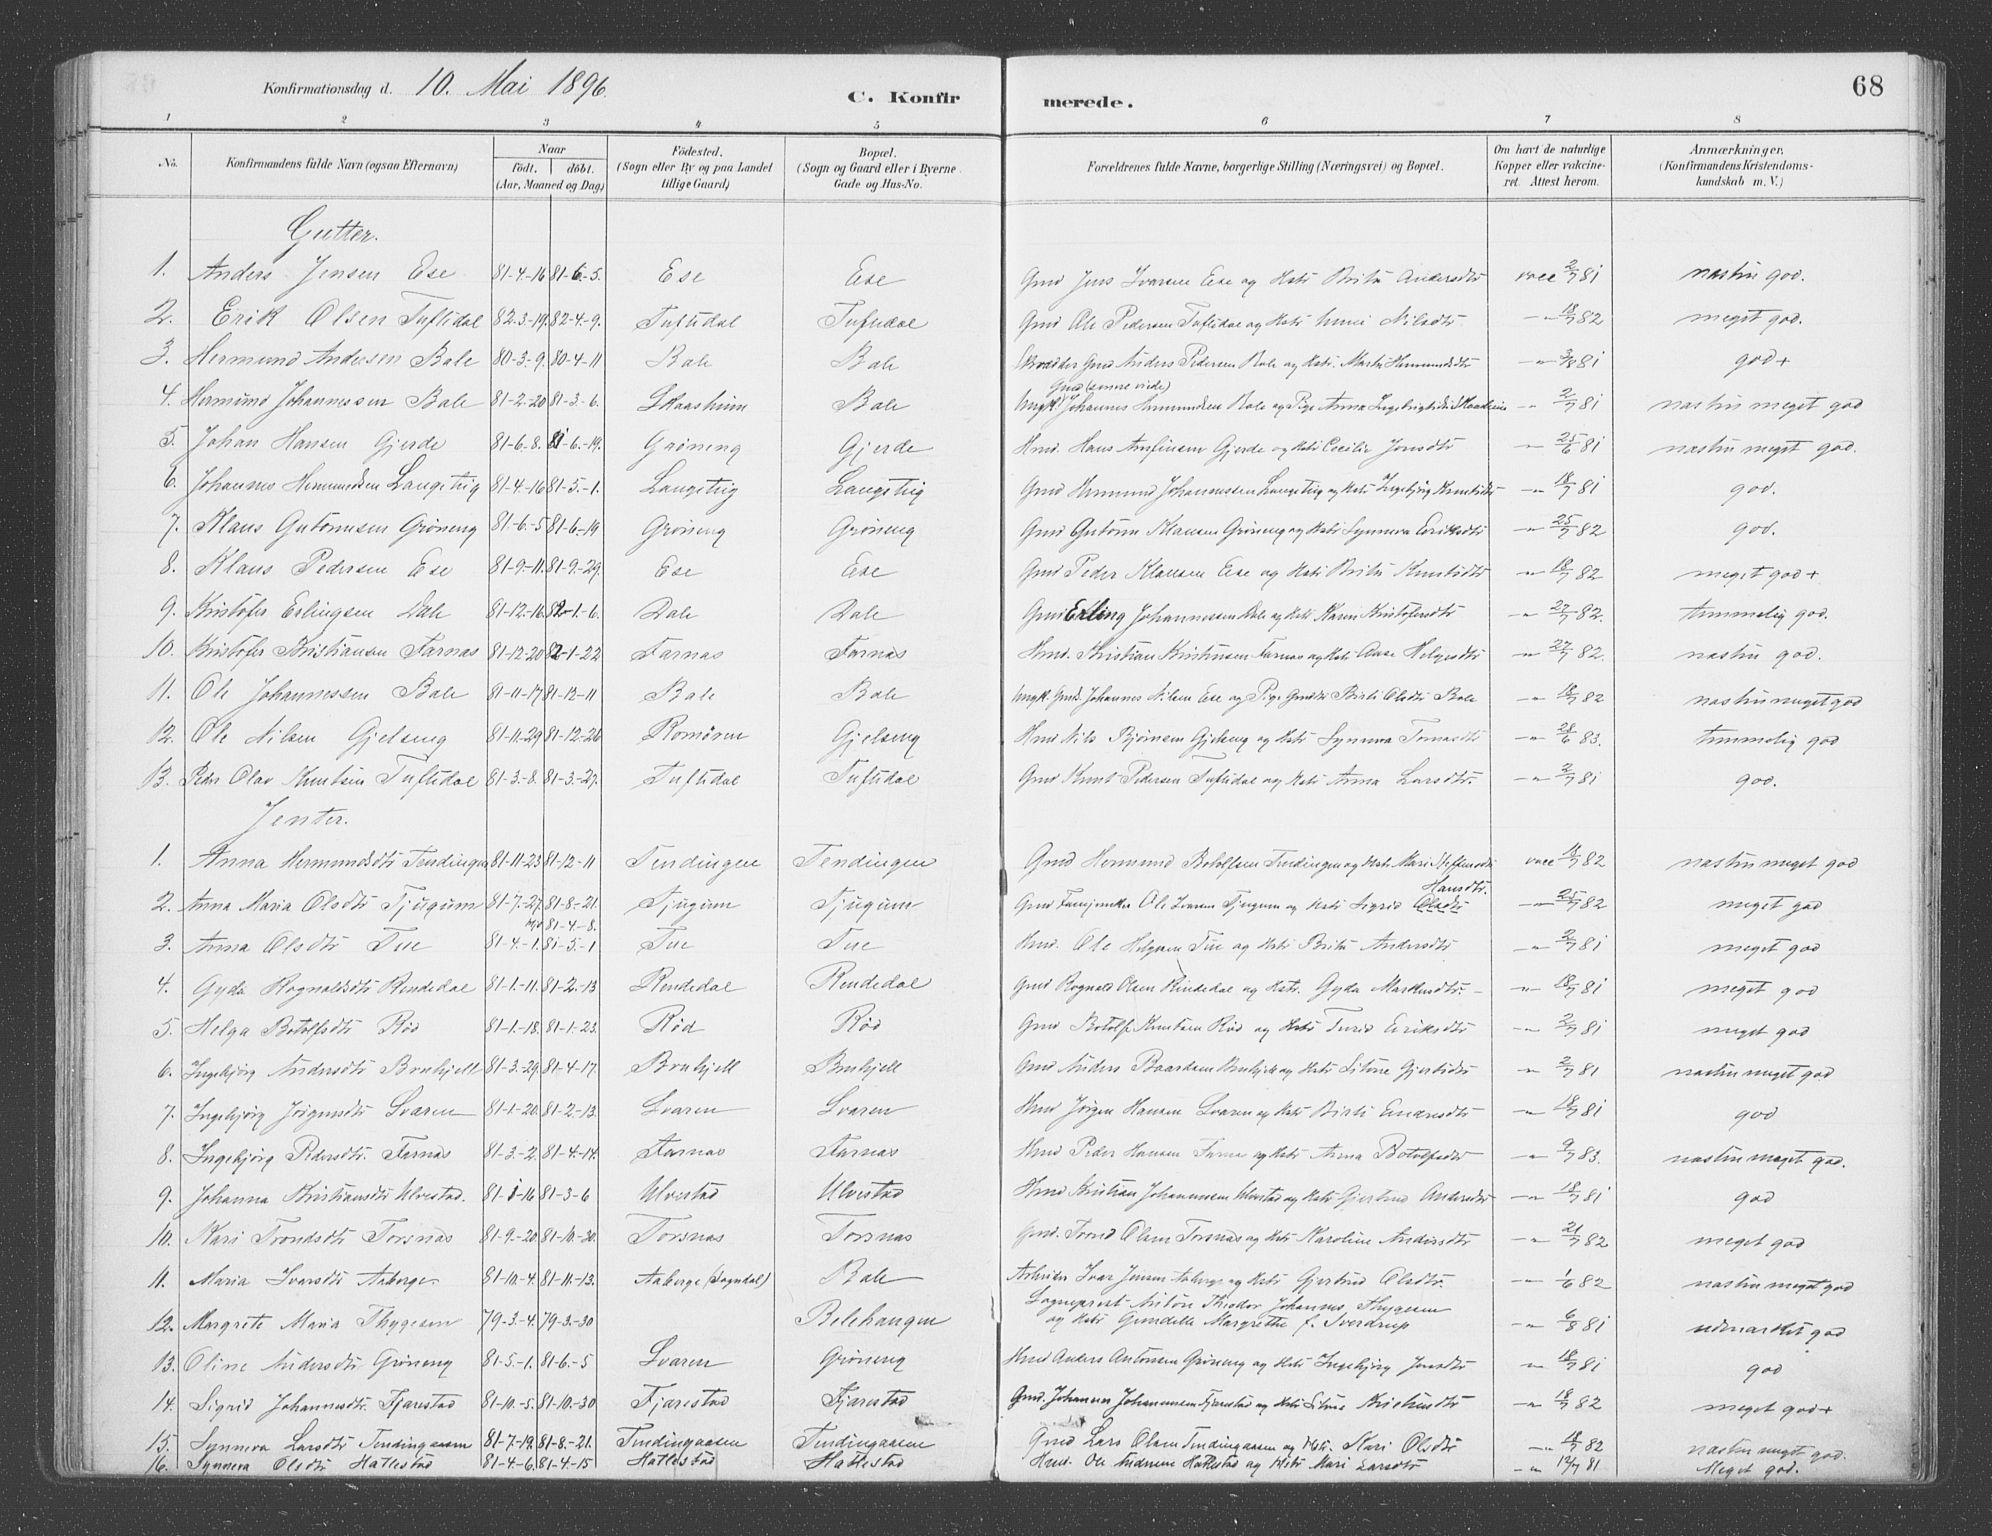 68
Konfirmationsdag d. 10. Mai 1896.
C. Konfirmerede.
1 2 3 4 5 6 7 8
No. Konfirmandens fulde Navn (ogsaa Efternavn) Naar født. døbt. (Aar, Maaned og Dag) Fødested. (Sogn eller By og paa Landet tillige Gaard) Bopæl. (Sogn og Gaard eller i Byerne Gade og Hus-No. Forældrenes fulde Navne, borgerlige Stilling (Næringsvei) og Bopæl. Om havt de naturlige Kopper eller vakcineret. Attest herom. Anmærkninger. (Konfirmandens Kristendomskundskab m. V.)
Gutter.
1. Anders Jensen Ese 81-4-16 81-6-5. Ese Ese Gmd Jens Ivarsen Ese og Kstr Brita Andersdtr vacc 2/7 81 næstn god.
2. Erik Olsen Tuftedal 82.3-19. 82-4-9. Tuftedal Tuftedal Gmd Ole Pedersen Tuftedal og Kstr Nilsdtr -"- 18/7 82 meget god.
3. Hermund Andersen Bale 80-3-9. 80-4-11 Bale Bale Gmd Anders Pedersen Bale og Kstr. Marta Hermundsdtr -"- 3/8 81 god+
4. Hermund Johannessen Bale 81-2-20 81-3-6. Skaasheim Bale Ungk. Johannes Hermundsen Bale og Pige Anna Ingebrigtsdtr Skaasheim -"- 2/7 81 næstn meget god
5. Johan Hansen Gjerde 81-6-8. 81-6-19. Grøneng Gjerde Hmd. Hans Gjerde og Kstr Cecilie Jonsdtr -"- 25/6 81 næstn meget god.
6. Johannes Hermundsen Langeteig 81-4-16 81-5-1. Langeteig Langeteig Gmd Hermund Johannessen Langeteig og Kstr Ingebjørg Knutsdtr -"- 18/7 81 god.
7. Klaus Guttormsen Grøneng 81-6-5 81-6-19 Grøneng Grøneng Gmd Guttorm Klausen Grøneng og Kstr Synneva Eriksdtr -"- 25/7 82 god.
8. Klaus Pedersen Ese 81-9-11. 81-9-29. Ese Ese Gmd Peder Klausen Ese og Kstr Brita Knutsdtr -"- 18/7 82 meget god+
9. Kristofer Erlingsen Dale 81-12-16 82-1-6. Dale Dale Gmd Erling Johannessen Dale og Kstr Karen Kristofersdtr -"- 27/7-82. temmelig god.
10. Kristofer Kristiansen Farnes 81-12-20 82-1-22 Farnes Farnes Hmd. Kristian Kristensen Farnas og Kstr Aase Helgesdtr -"- 27/7 82. næstn god.
11. Ole Johannessen Bale 81-11-17 81-12-11 Bale Bale Ungk. Gmd. Johannes Nilsen Ese og Pige Gmdtr Brita Olsdtr Bale -"- 18/7 82 næstn meget god
12. Ole Nilsen Gjelseng 81-11-29 81-12-26 Romøren Gjelseng Hmd Nils Bjørnsen Gjelseng og Kstr Synneva Tomasdtr -"- 28/6 83. temmelig god
13. Peder Olav Knutsen Tuftedal 81-3-8. 81-3-27. Tuftedal Tuftedal Gmd Knut Pedersen Tuftedal og Kstr Anna Larsdtr. -"- 2/7 81 god.
Jenter.
1. Anna Hermundsdtr Tendingen 81-11-23 81-12-11 Tendingen Tendingen Gmd Hermund Botolfsen Tendingen og Kstr Mari Steffensdtr vacc 18/7 82 næstn meget god
Hansdtr.
2. Anna Maria Olsdtr Tjugum 81-7-27. 81-8-21. Tjugum Tjugum Gmd Ole Ivarsen Tjugum og Kstr Sigrid Olsdtr -"- 25/7 82 meget god
81-4-8.
3. Anna Olsdtr Tue 81-4-1. 81-5-1 Tue Tue Hmd. Ole Helgesen Tue og Kstr Brita Andersdtr -"- 2/7 81 meget god
4. Gyda Rognaldsdtr Rendedal 81-1-11. 81-2-13 Rendedal Rendedal Gmd Rognald Olsen Rendedal og Kstr. Gyda Markusdtr. -"- 18/7 81 meget god
5. Helga Botolfsdtr Rød 81-1-18. 81-1-23. Rød Rød Gmd Botolf Knutsen Rød og Kstr Turid Eriksdtr -"- 2/7 81 meget god
6. Ingebjørg Andersdtr Brnhjell 81-3-29. 81-4-17. Brnhjell Brnhjell Gmd Anders Baardsen Brnhjell og Kstr Sitne Gjertsdtr -"- 2/7 81 næstn meget god
7. Ingebjørg Jørgensdtr Svaren 81-1-20. 81-2-13. Svaren Svaren Hmd Jørgen Hansen Svaren og Kstr Brita Endresdtr -"- 18/7 81 god
8. Ingebjørg Pedersdtr. Farnes 81-3-2. 81-4-14. Farnes Farnes Hmd Peder Hansen Farnes og Kstr Anna Botolfsdtr -"- 9/7 83. næstn meget god.
9. Johanna Kristiansdtr Ulvestad. 81-1-16 81-3-6 Ulvestad Ulvestad Hmd Kristian Johannessen Ulvestad og Kstr Gjertrud Andersdtr -"- 18/7 81 god
10. Kari Trondsdtr Torsnes 81-9-20. 81-10-30. Torsnes Torsnes Gmd. Trond Olsen Torsnas og Kstr Karoline Andersdtr -"- 21/7 82 meget god
11. Maria Ivarsdtr Aaberge. 81-10-4. 81-11-13. Aaberge (Sogndal) Bale Arbeider Ivar Jensen Aaberge og Kstr Gjertrud Olsdtr. -"- 1/6 82 næstn meget god
12. Margrete Maria Thygesen 79-3-4. 79-3-30 Belehaugen Sogneprest Anton Theodor Johannes Thygesen og Kstr Gundelle Margrethe f. Sverdrup -"- 6/8 81 udmærket god
13. Oline Andersdtr Grøneng 81-5-1. 81-6-5 Svaren Grøneng Hmd Anders Antonsen Grøneng og Kstr Ingebjørg Jensdtr -"- 18/7 81 god
14. Sigrid Johannesdtr. Fjærestad 81-10-5. 81-10-30 Fjærestad Fjærestad Gmd. Johannes Johannessen Fjærestad og Kstr Sitne Kristensdtr -"- 18/7 82 meget god+
15. Synneva Larsdtr Tendingaasen 81-7-19. 81-8-21. Tendingaasen Tendingaasen Gmd Lars Olsen Tendingaasen og Kstr. Kari Olsdtr -"- 18/7 82 næstn meget god.
16. Synneva Olsdtr Hatlestad 81-4-6. 81-4-15 Hatlestad Hatlestad Hmd. Ole Andersen Hatlestad og Kstr Mari Larsdtr -"- 12/7 81 Meget god.